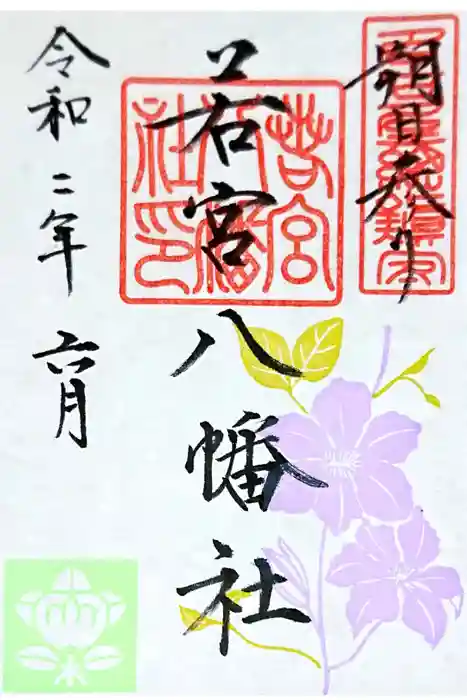 朔日参り
若宮八幡社
令和二年六月
若宮八幡社印